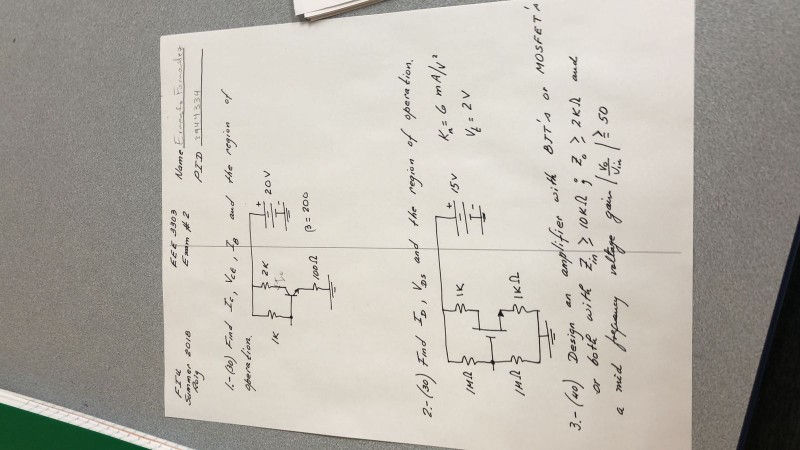 FIU
Summer 2018
Roig
EEE 3303
Exam #2
Name
PID
1.- (30) Find IC, VCE, IB and the region of
operation.
1K
2K
100Ω
+
20V
β = 200
2.- (30) Find ID, VDS and the region of operation.
1MΩ
1K
1MΩ
1KΩ
+
15V
Kn = 6 mA/V²
Vt = 2V
3.- (40) Design an amplifier with BJT's or MOSFET's
or both with Zin ≥ 10KΩ ; Zo ≥ 2KΩ and
a mid freqency voltage gain |Vo/Vin| ≥ 50